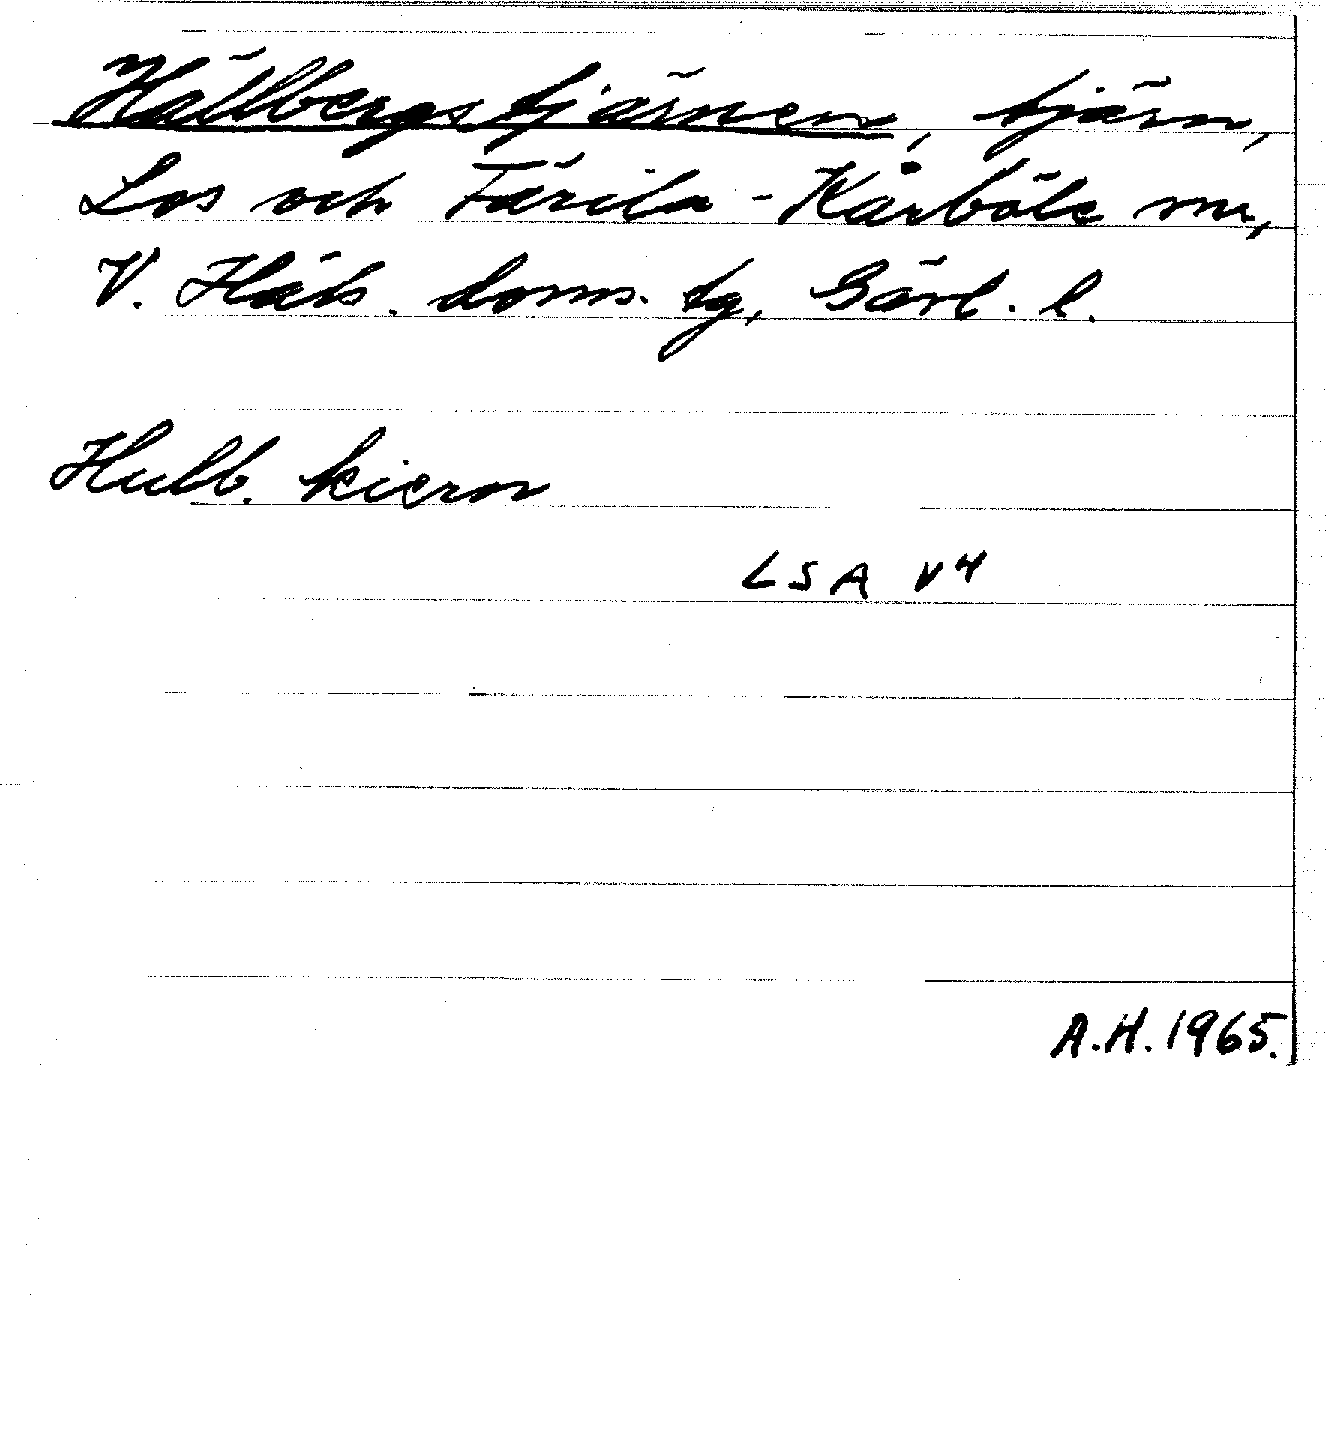 Hällbergstjärnen, tjärn,
Los och Färila-Kårböle snr,
V. Häls. doms. tg, Gävl. l.
Hullb. kieron
LSA V4
A.H. 1965.